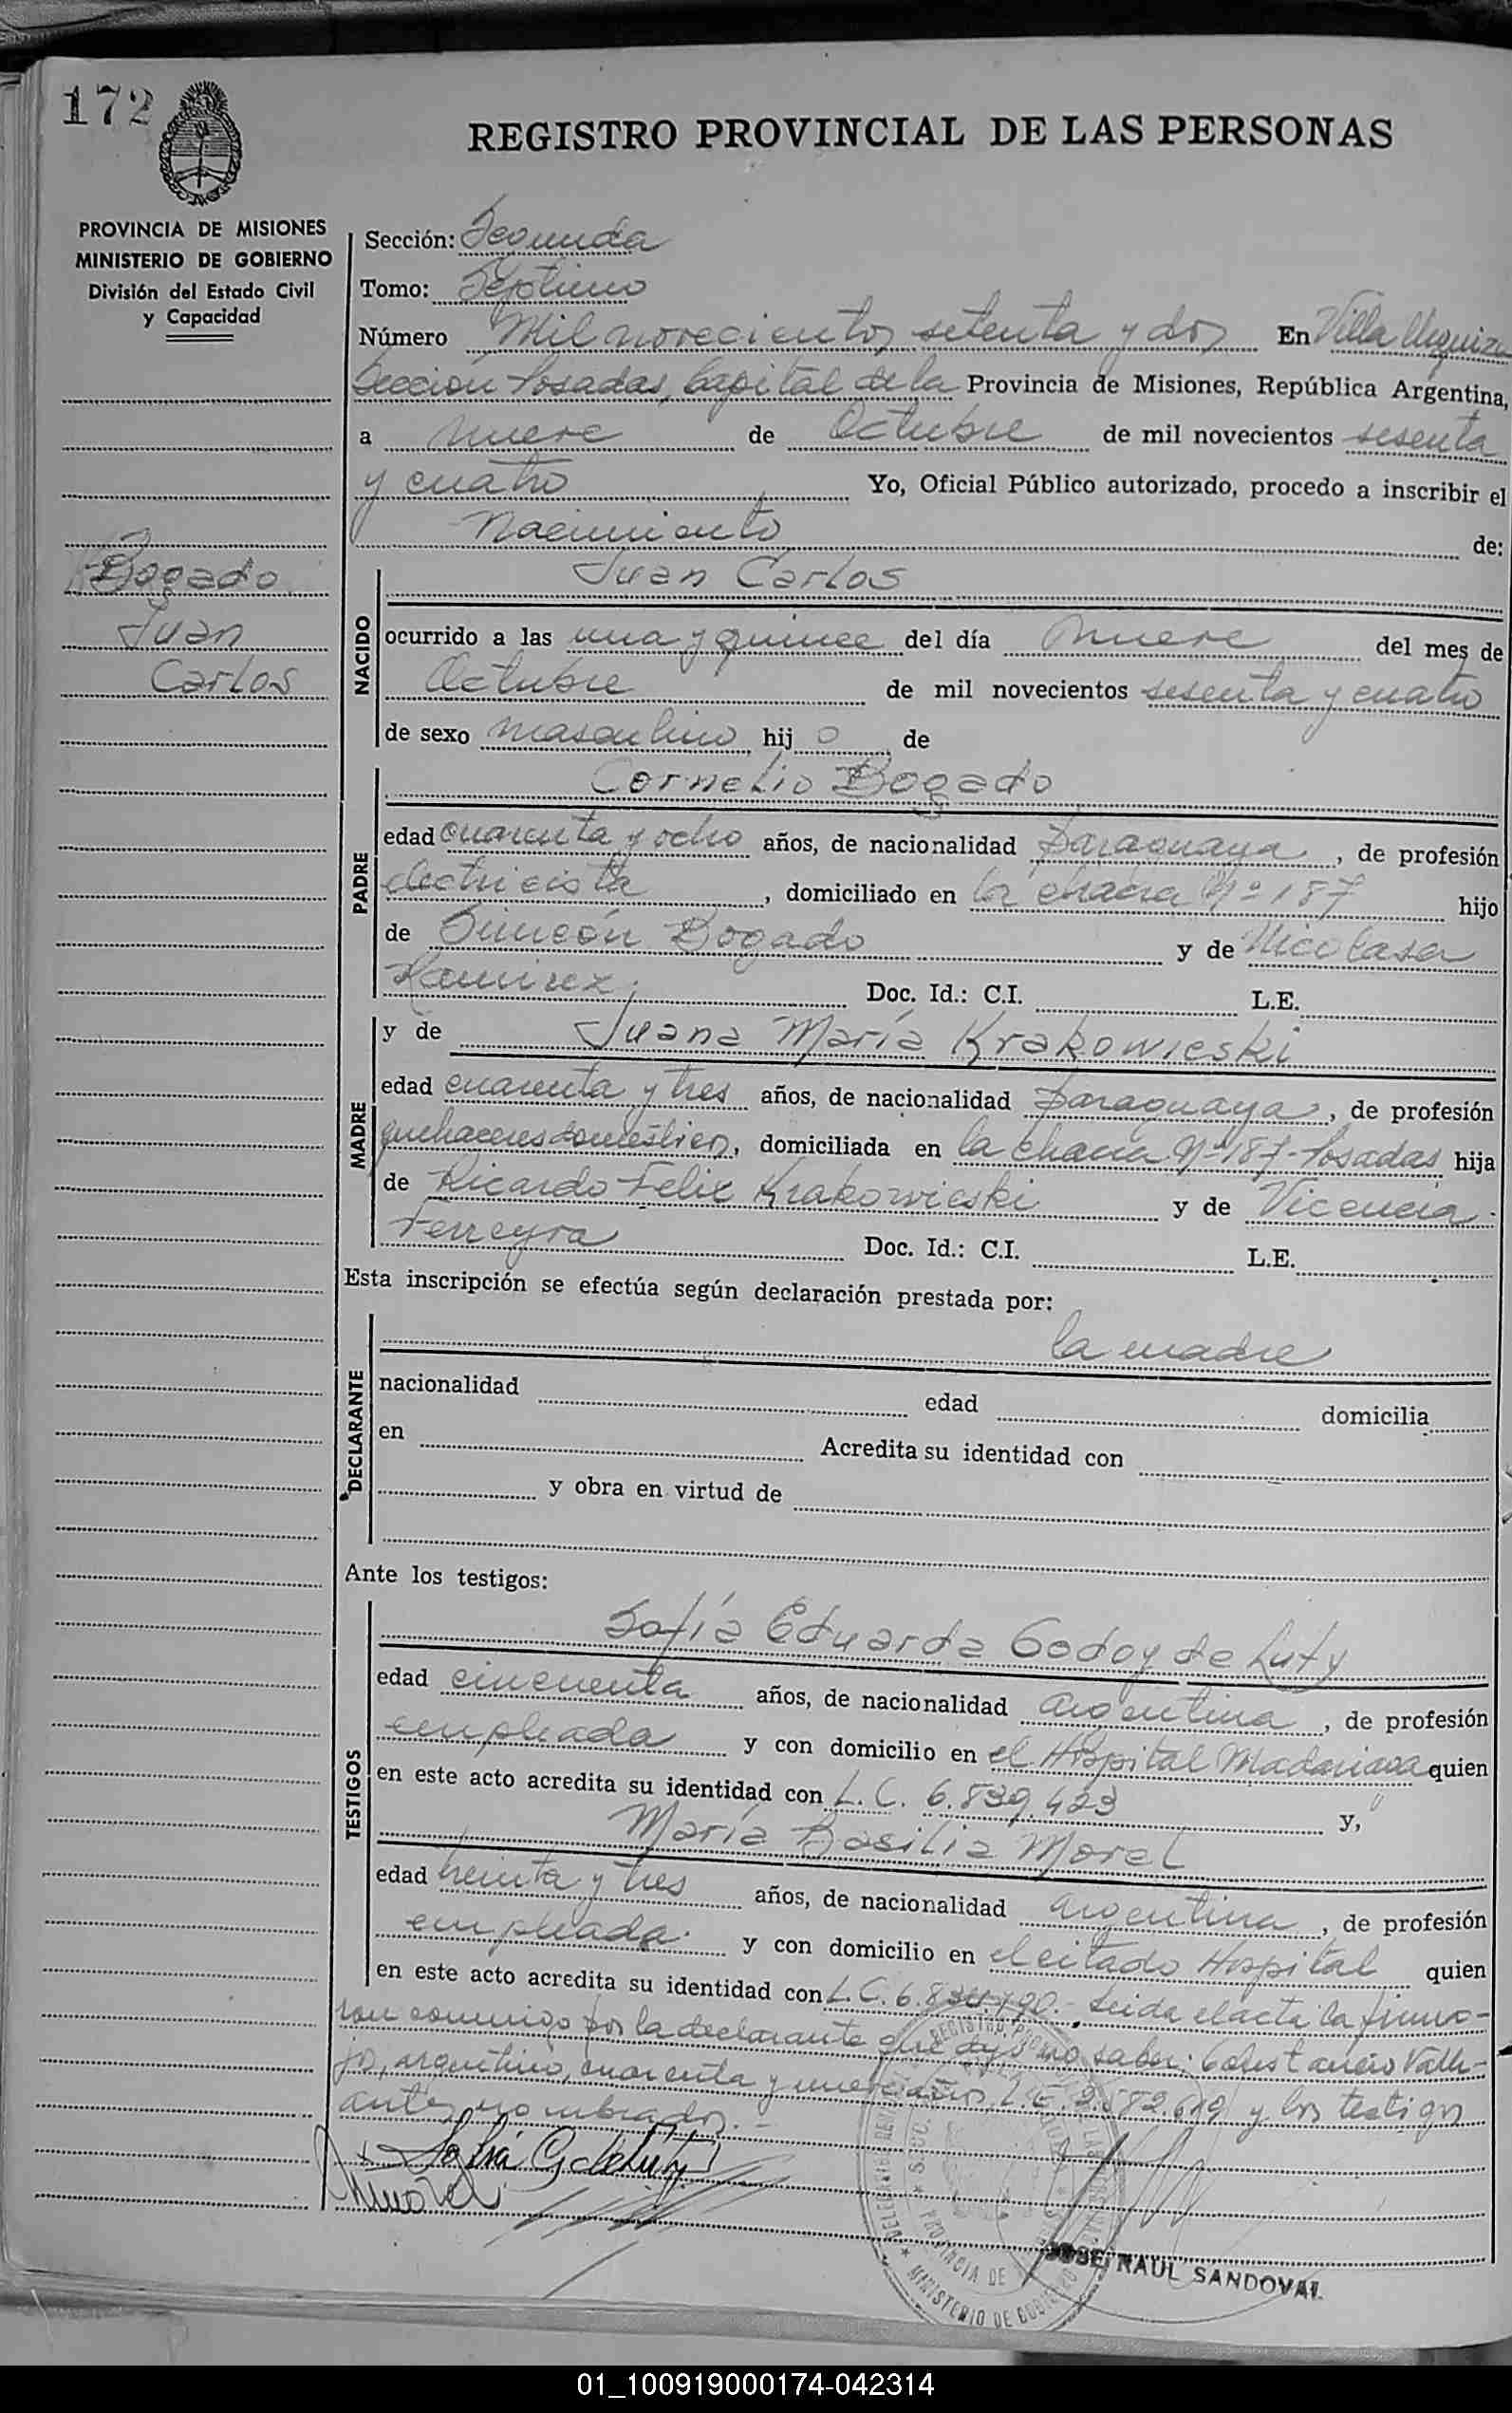 172
REGISTRO PROVINCIAL DE LAS PERSONAS
PROVINCIA DE MISIONES
MINISTERIO DE GOBIERNO
División del Estado Civil
y Capacidad
Bogado
Juan
Carlos
Sección: Segunda
Tomo: Séptimo
Número Mil novecientos setenta y dos En Villa Urquiza
Sección Posadas, Capital de la Provincia de Misiones, República Argentina,
a nueve de Octubre de mil novecientos sesenta
y cuatro Yo, Oficial Público autorizado, procedo a inscribir el
Nacimiento de:
NACIDO
Juan Carlos
ocurrido a las una y quince del día nueve del mes de
Octubre de mil novecientos sesenta y cuatro
de sexo masculino hijo de
PADRE
Cornelio Bogado
edad cuarenta y ocho años, de nacionalidad paraguaya, de profesión
electricista, domiciliado en la chacra Nº 187 hijo
de Simeón Bogado y de Nicolasa
Ramirez; Doc. Id.: C.I. L.E.
MADRE
y de Juana María Krakowieski
edad cuarenta y tres años, de nacionalidad paraguaya, de profesión
quehaceres domésticos, domiciliada en la chacra Nº 187-Posadas hija
de Ricardo Felix Krakowieski y de Vicencia
Ferreyra Doc. Id.: C.I. L.E.
Esta inscripción se efectúa según declaración prestada por:
DECLARANTE
la madre
nacionalidad edad domicilia
en Acredita su identidad con
y obra en virtud de
Ante los testigos:
TESTIGOS
Sofía Eduarda Godoy de Luty
edad cincuenta años, de nacionalidad argentina, de profesión
empleada y con domicilio en el Hospital Madariaga quien
en este acto acredita su identidad con L.C. 6.839.423 y,
María Basilia Morel
edad treinta y tres años, de nacionalidad argentina, de profesión
empleada. y con domicilio en el citado Hospital quien
en este acto acredita su identidad con L.C. 6.834.790.- Leida el acta la firma-
ron conmigo por la declarante que dijo no saber: Constancio Valle-
jo, argentino, cuarenta y nueve años, L.E. 2.582.619 y los testigos
antes nombrados.-
Sofía G de Luty
JOSE RAUL SANDOVAL
01_100919000174-042314